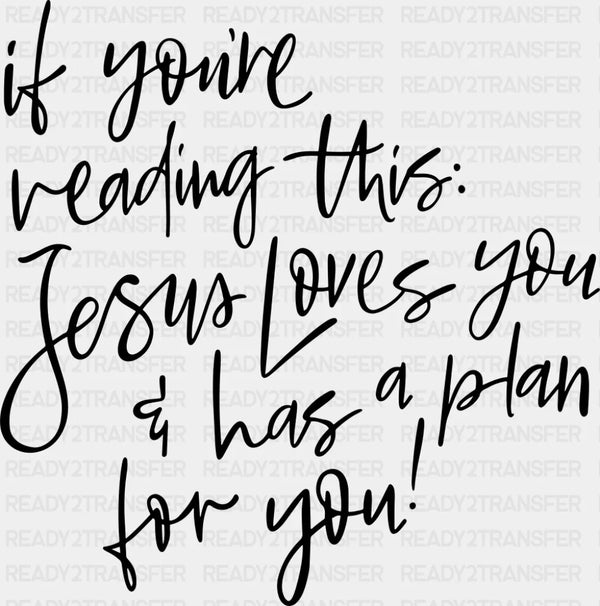 if you're
reading this:
Jesus Loves you
& has a plan
for you!
READY2TRANSFER